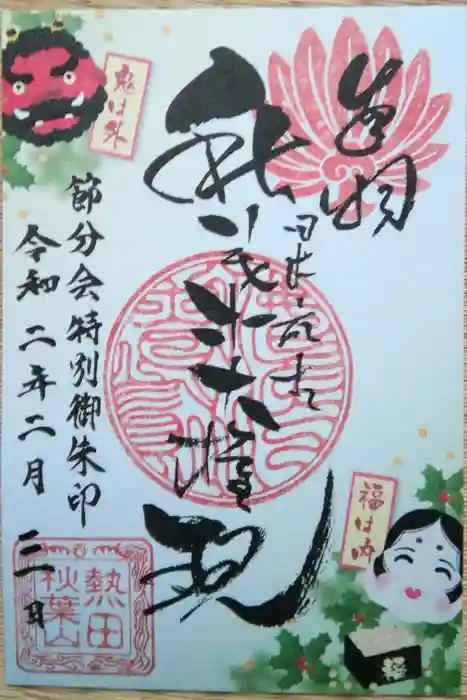 奉拝
日本元来
秋葉大権現
節分会特別御朱印
令和二年二月三日
鬼は外
福は内
熱田
秋葉山